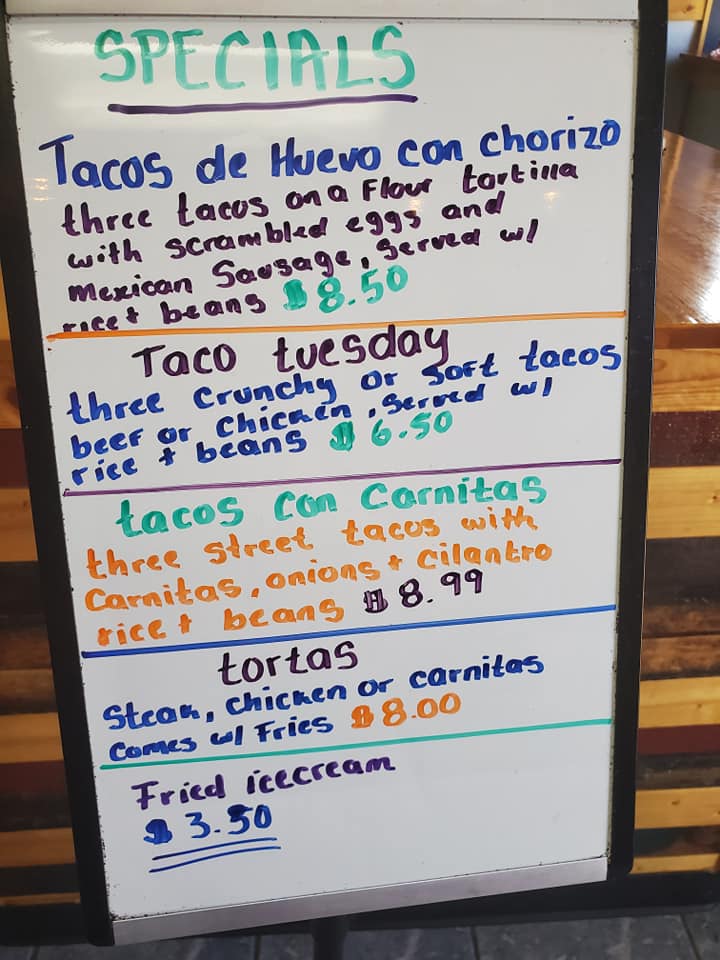 SPECIALS
Tacos de Huevo con Chorizo
three tacos on a Flour tortilla
with scrambled eggs and
Mexican Sausage, Served w/
rice + beans $8.50
Taco tuesday
three crunchy or soft tacos
beef or chicken, served w/
rice + beans $6.50
tacos con Carnitas
three street tacos with
Carnitas, onions + cilantro
rice + beans $8.99
tortas
Steak, chicken or carnitas
comes w/ Fries $8.00
Fried icecream
$3.50